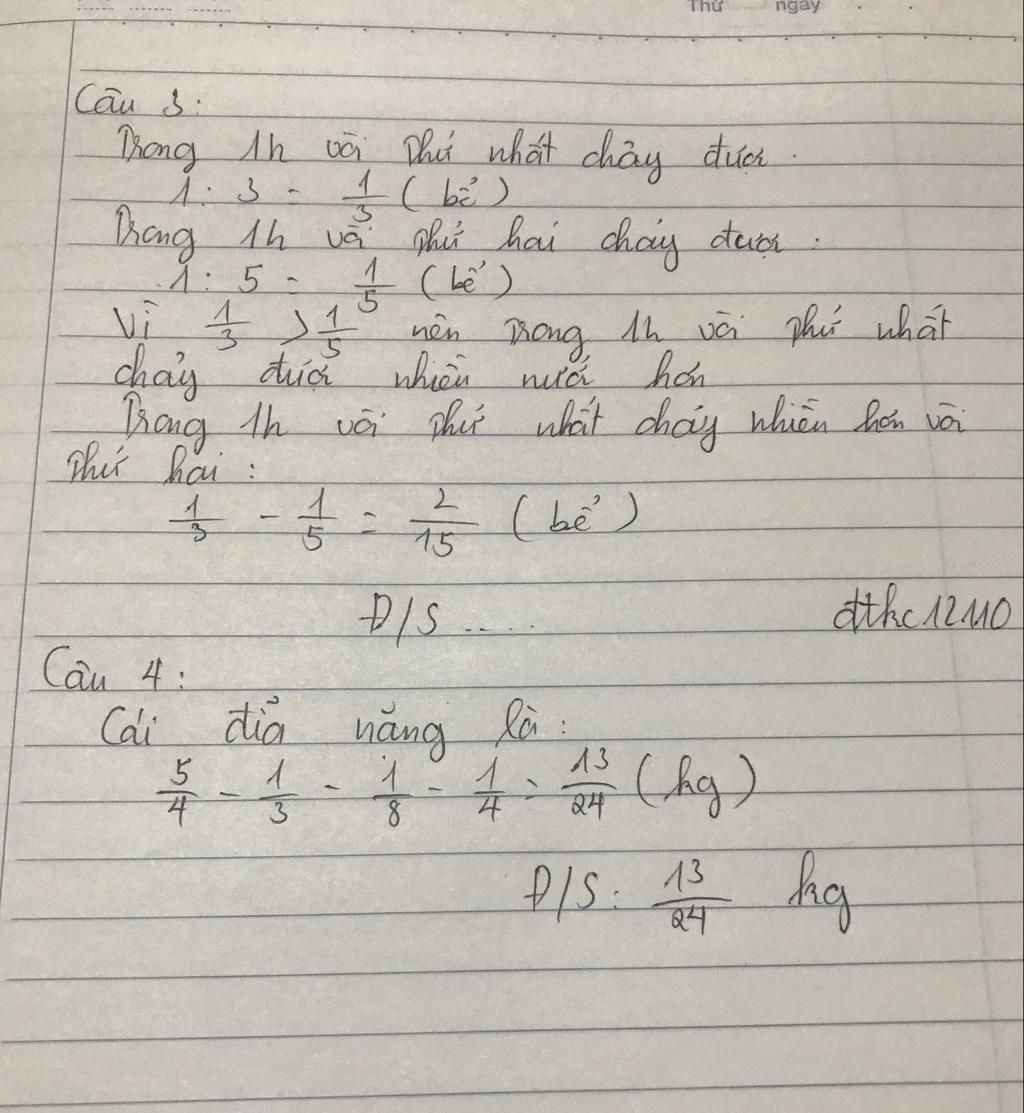 Thứ ngày
Câu 3:
Trong 1h vòi thứ nhất chảy được.
1 : 3 = 1/3 (bể)
Trong 1h vòi thứ hai chảy được :
1 : 5 = 1/5 (bể)
Vì 1/3 > 1/5 nên trong 1h vòi thứ nhất
chảy được nhiều nước hơn
Trong 1h vòi thứ nhất chảy nhiều hơn vòi
thứ hai :
1/3 - 1/5 = 2/15 (bể)
Đ/S .....
dthc12110
Câu 4 :
Cái đĩa nặng là :
5/4 - 1/3 - 1/8 - 1/4 = 13/24 (kg)
Đ/S : 13/24 kg